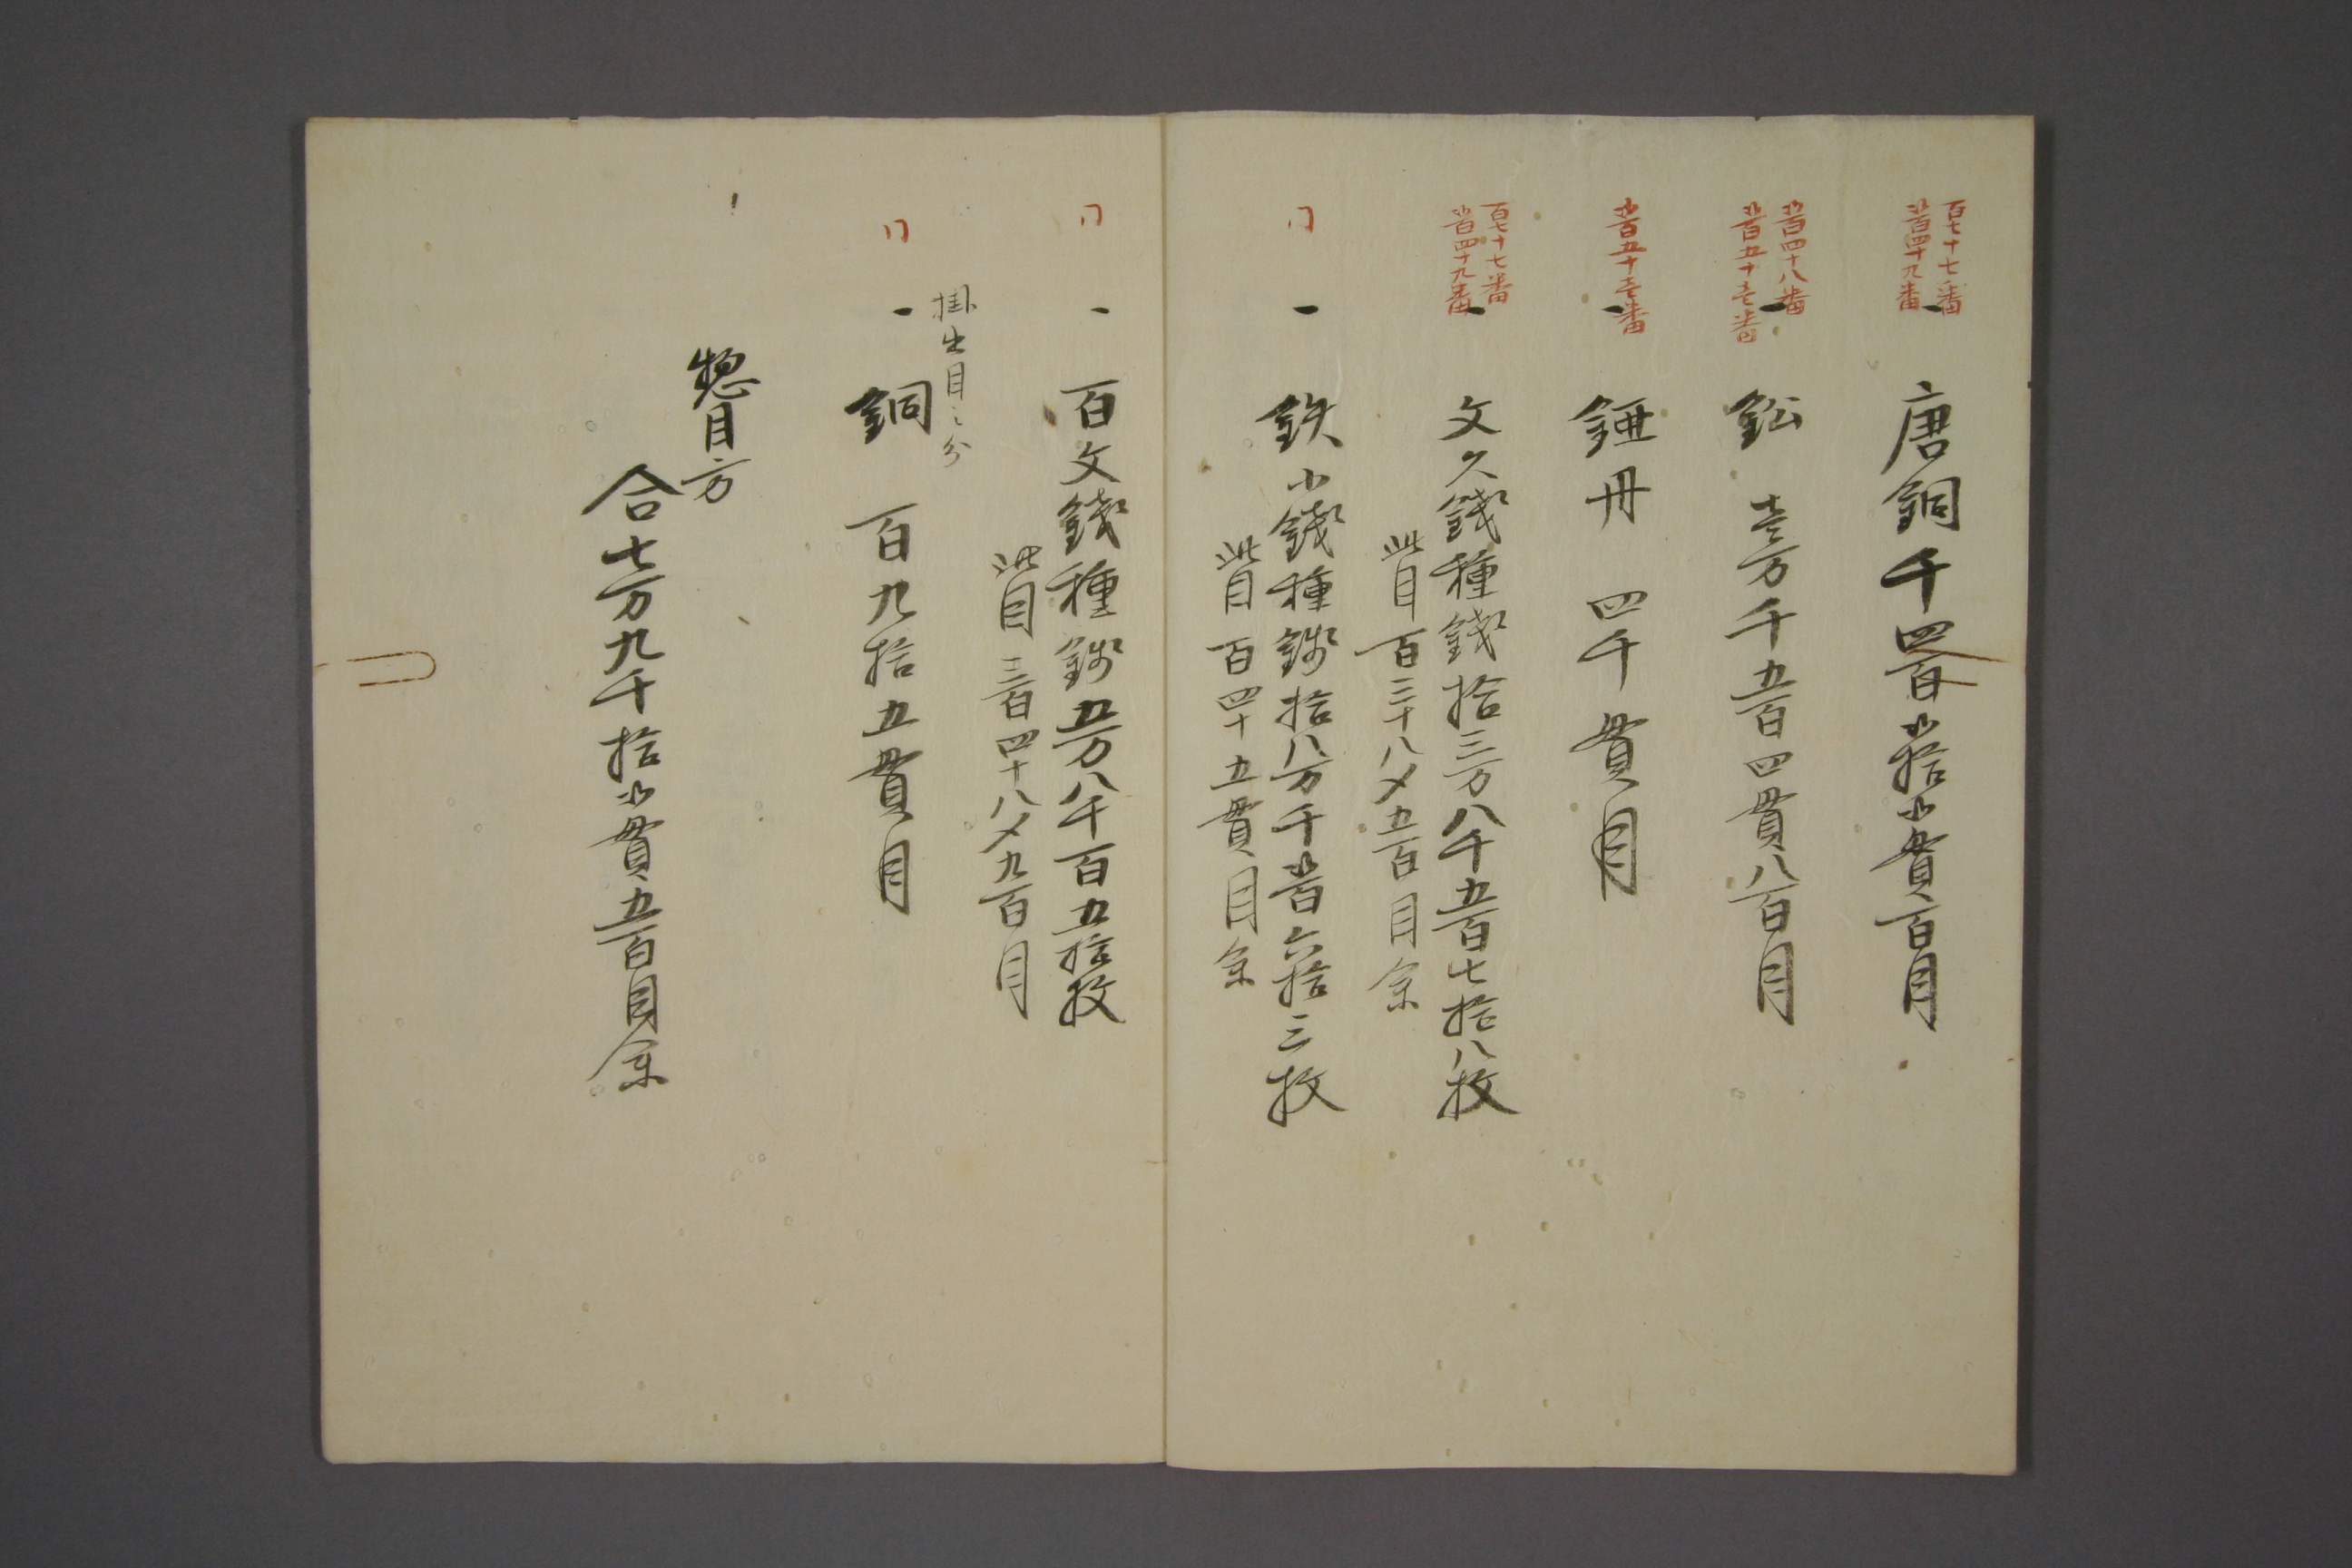 百七十七番
弐百四十九番
一 唐銅千四百弐拾弐貫百目
弐百四十八番
弐百五十壱番
一 鈆 壱万千五百四貫八百目
弐百五十壱番
一 錏丹 四千貫目
百七十七番
弐百四十九番
一 文久錢種錢拾三万八千五百七拾八枚
此目百三十八〆五百目余
〃
一 鉄小錢種錢拾八万千弐百六拾三枚
此目百四十五貫目余
〃
一 百文錢種錢五万八千百五拾枚
此目三百四十八〆九百目
掛出目之分
〃
一 銅 百九拾五貫目
惣目方
合七万九千拾弐貫五百目余